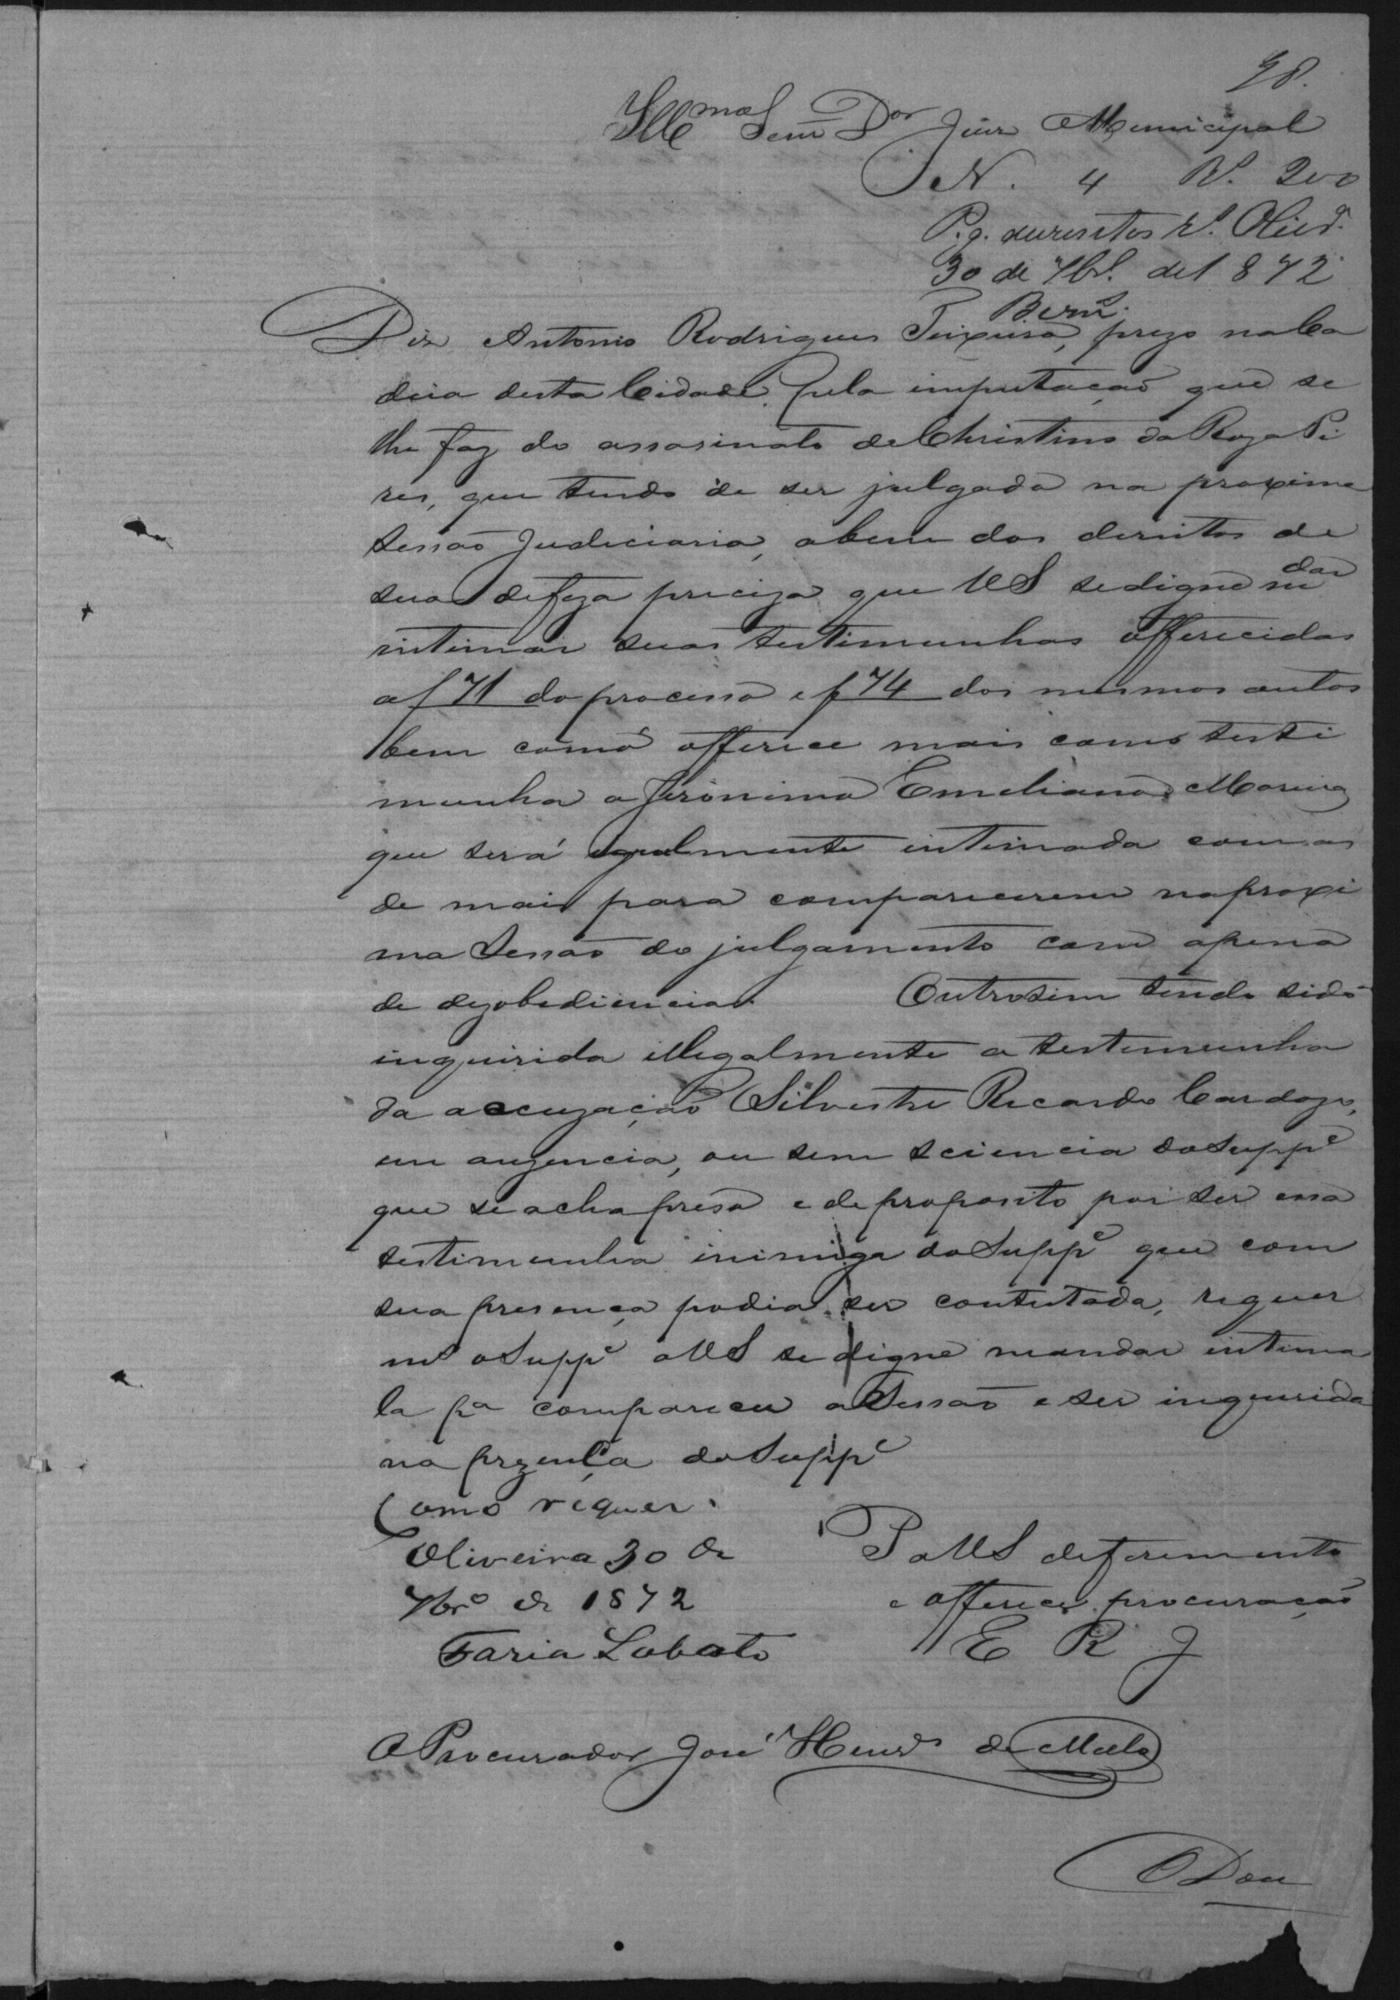 98.
Ill<sup>mo</sup> Senr D<sup>or</sup> Juiz Municipal
N. 4 R<sup>s</sup>. 200
P.g. duzentos r<sup>s</sup>. Olivr<sup>a</sup>.
30 de 7br<sup>o</sup>. de 1872
Diz Antonio Rodrigues Teixeira, prezo na Ca
deia desta Cidade pela imputação que se
lhe faz do assasinato de Christino da Roza Pi
res, que tendo de ser julgado na proxima
sessão Judiciaria, a bem dos direitos de
sua defeza preciza que VS se digne mandar
intimar suas testimunhas offerecidas
a f 71 do processo e f 74 dos mesmos autos
bem como offerece mais como testi
munha a Jeronimo Emeliano
que será egualmente intimada com as
de mais para comparecerem na proxi
ma Sessão do julgamento com apena
de dezobediencia. Outrosim tendo sido
inquirida illegalmente a testemunha
da accuzação Silvestre Ricardo Cardozo,
em auzencia, ou sem sciencia do Supp<sup>e</sup>
que se acha preso e de proposito por ser essa
testimunha inimiga do Supp<sup>e</sup> que com
sua presença podia ser contestada, requer
m<sup>o</sup> o Supp<sup>e</sup> a VS se digne mandar intima
la p<sup>a</sup> comparecer a Sessão e ser inquerida
na przença do Supp<sup>e</sup>
Como requer.
Oliveira 30 de
7br<sup>o</sup> de 1872
Faria Lobato
P a VS deferimento
e offerece procuração
E R J
O Procurador José Henr<sup>s</sup> de Mello